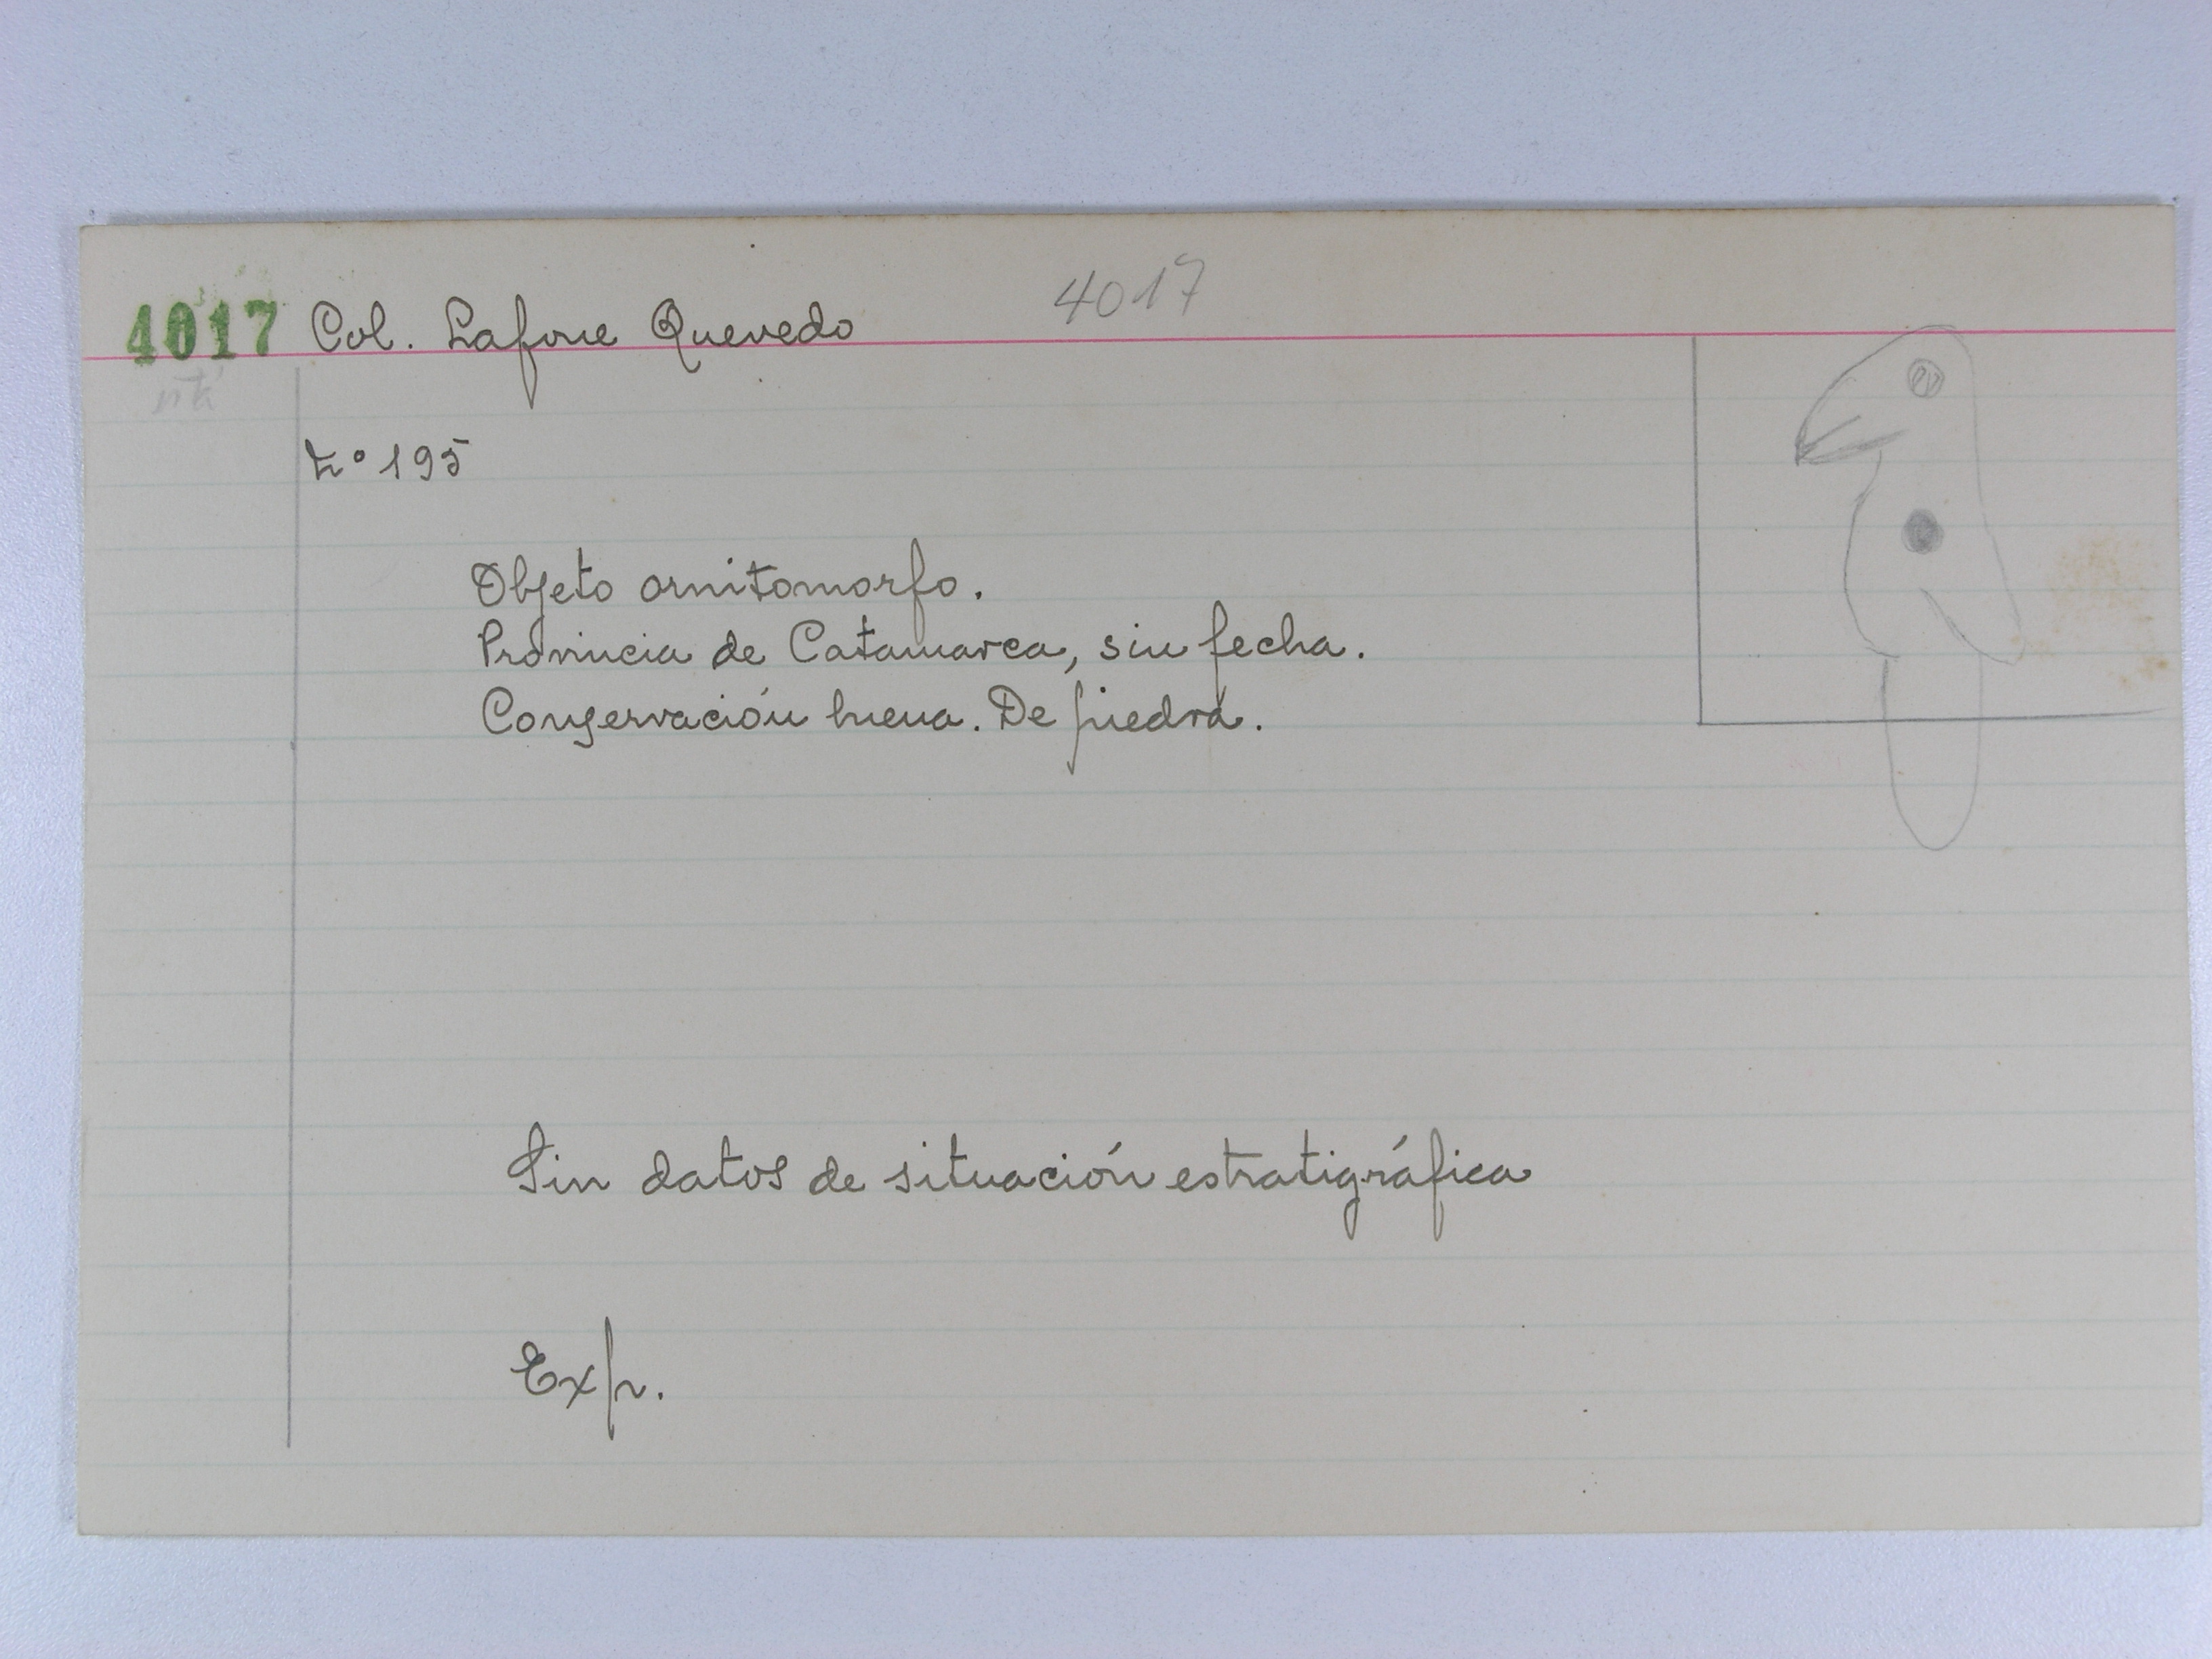 4017 Col. Lafone Quevedo 4017
está
Nº 195
Objeto ornitomorfo.
Provincia de Catamarca, sin fecha.
Conservación buena. De piedra.
Sin datos de situación estratigráfica
Exp.